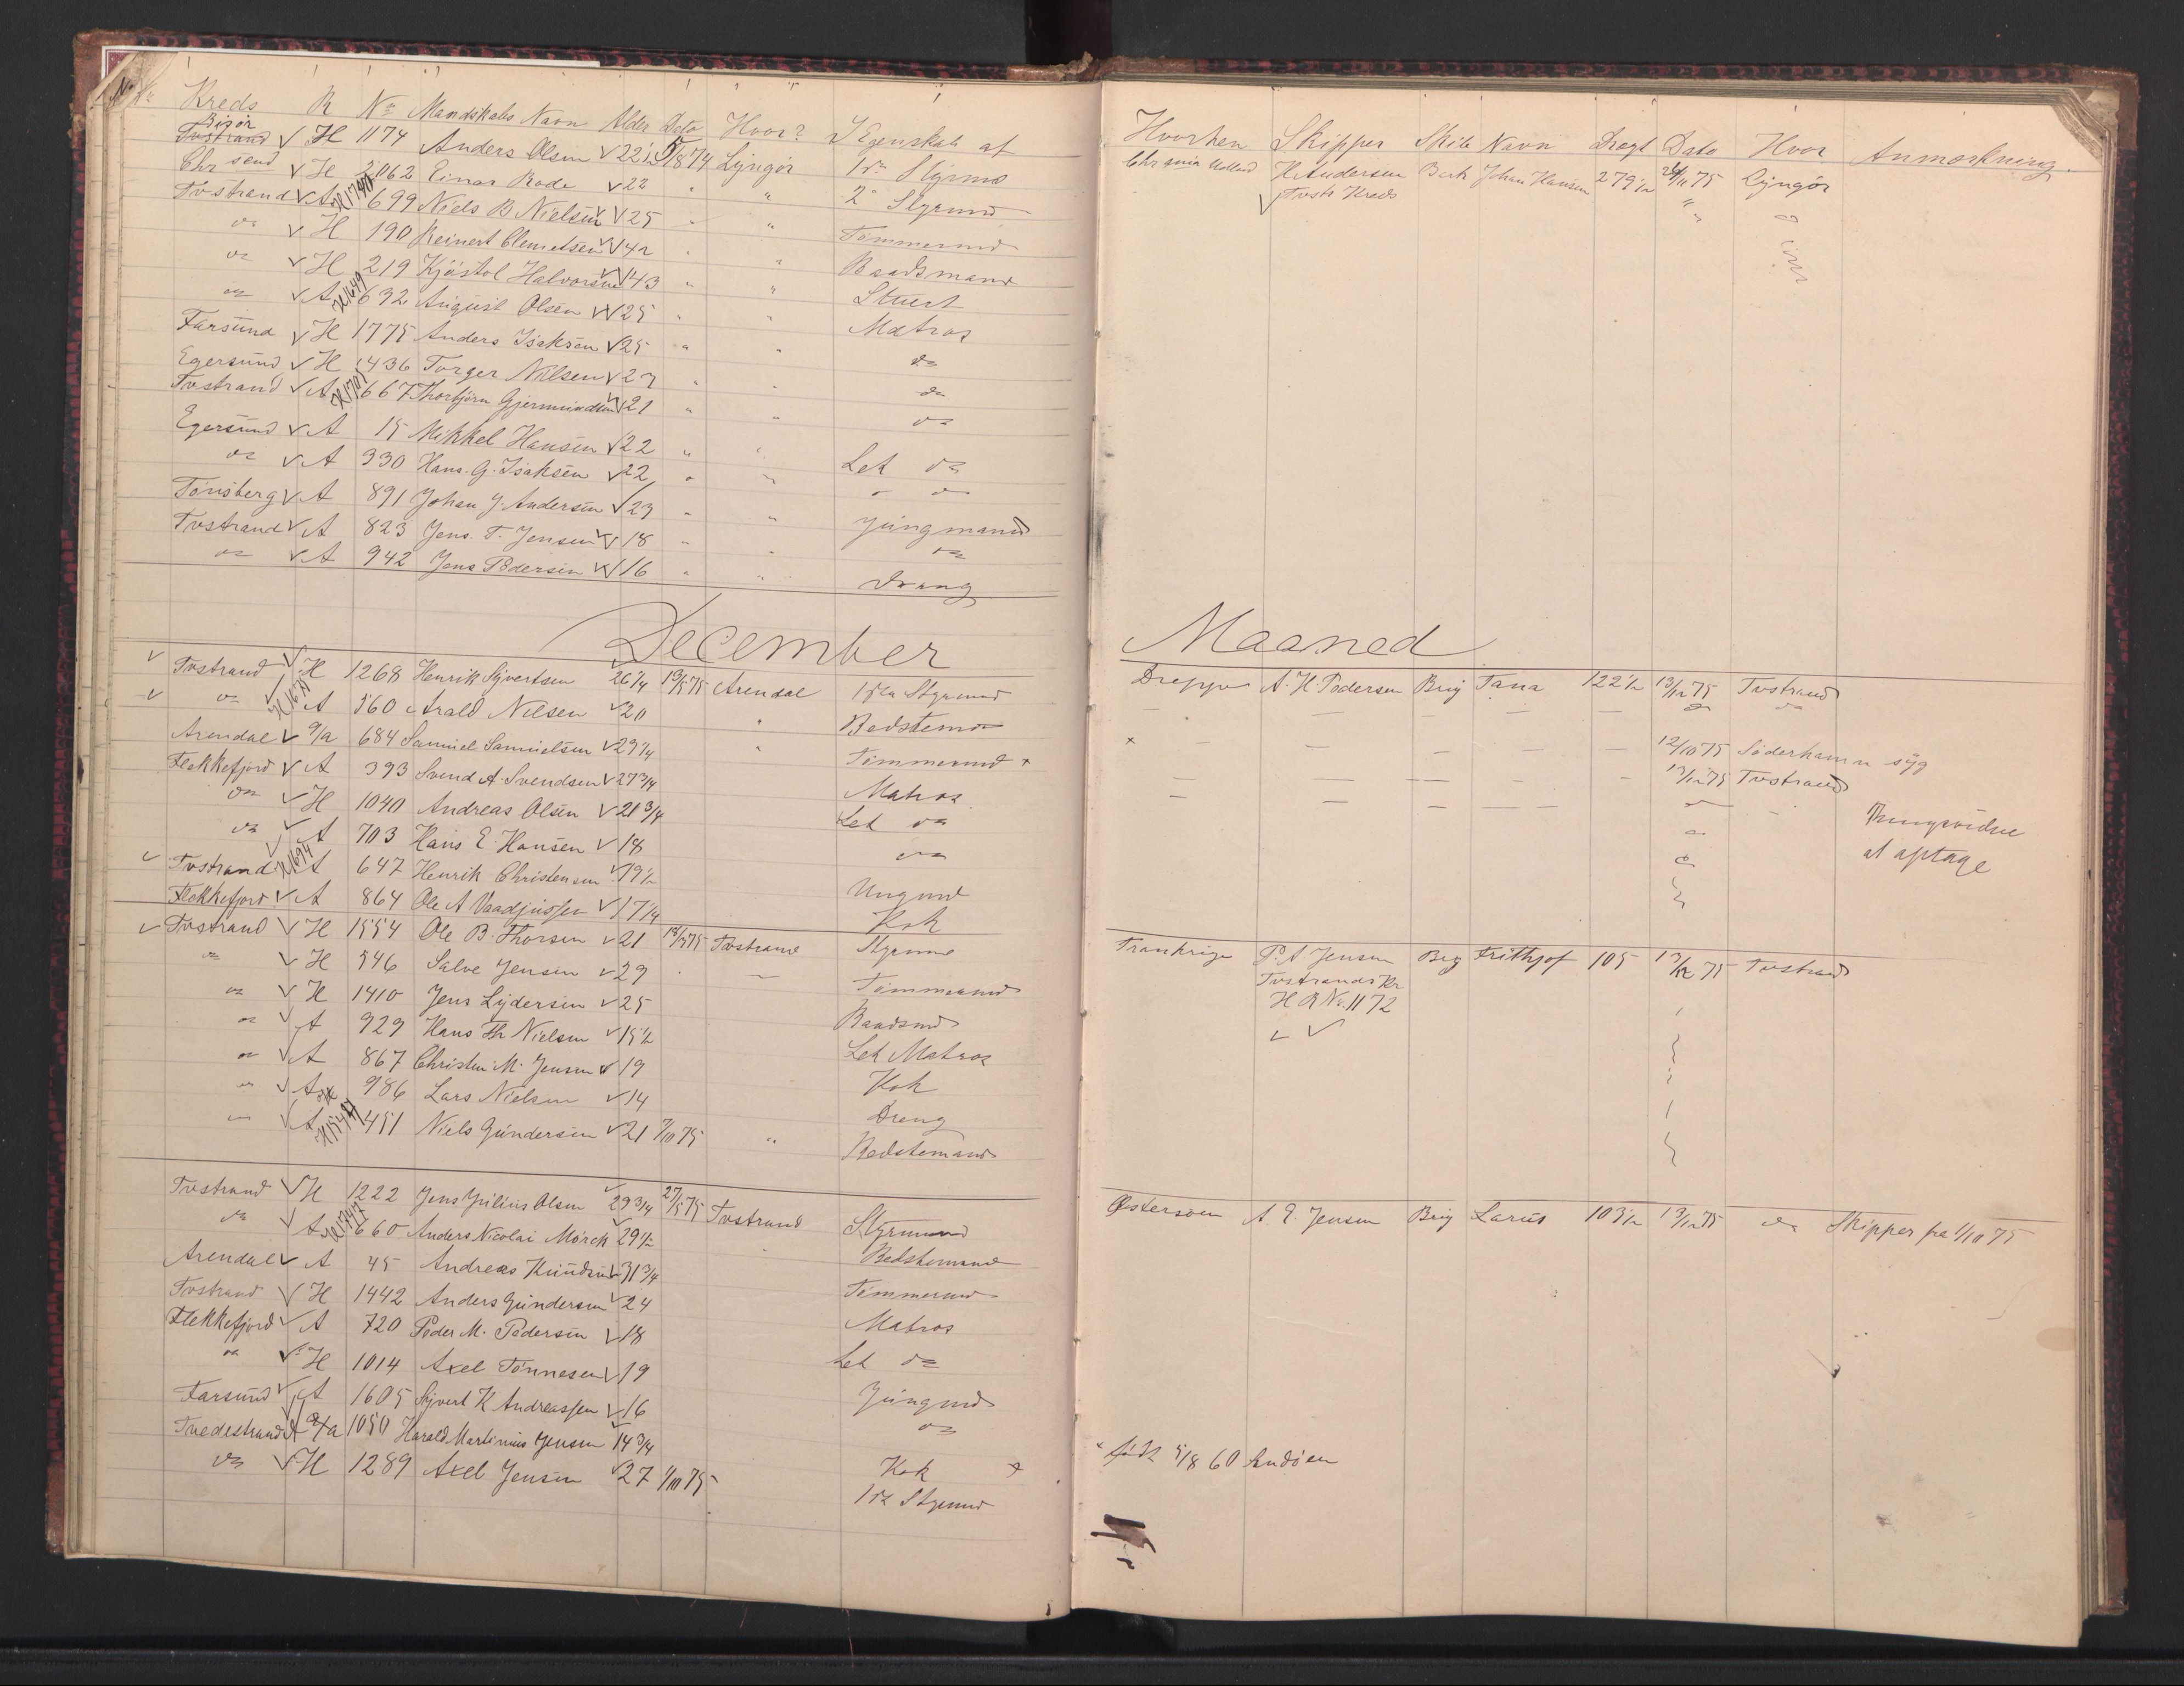 No Kreds R No Mandskabs Navn Alder Dato Hvor? I Egenskab af
Risør
Tvstrand H 1174 Anders Olsen 22½ 5/8 74 Lyngør 1ste Styrmd
Chrsend H 2062 Einar Bode 22 " " 2 Styrmd
Tvstrand A H1740 699 Niels B Nielsen 25 " " Tømmermd
do H 190 Reinert Clemetsen 42 " " Baadsmand
do H 219 Kjøstol Halvorsen 43 " " Stuert
do A H1649 632 August Olsen 25 " " Matros
Farsund H 1775 Anders Isaksen 25 " " do
Egersund H 1436 Torger Nilsen 23 " " do
Tvstrand A H1701 667 Thorbjørn Gjermundsen 21 " " do
Egersund A 15 Mikkel Hansen 22 " " Let do
do A 330 Hans G. Isaksen 22 " " " do
Tønsberg A 891 Johan J Andersen 23 " " Jungmand
Tvstrand A 823 Jens T. Jensen 18 " " do
do A 942 Jens Pedersen 16 " " Dreng
December
Tvstrand H 1268 Henrik Syvertsen 26¼ 19/5 75 Arendal 1ste Styrmd
do H1675 A 560 Arald Nilsen 20 " Bedstemd
Arendal a/a 684 Samuel Samuelsen 29¼ " Tømmermd x
Flekkefjord A 393 Svend A. Svendsen 27¾ Matros
do H 1040 Andreas Olsen 21¾ Let do
do A 703 Hans E. Hansen 18 do
Tvstrand H1674 A 647 Henrik Christensen 19½ Ungmd
Flekkefjord A 864 Ole A Vaadjussen 17¼ Kok
Tvstrand H 1554 Ole B. Thorsen 21 18/3 75 Tvstrand Styrmd
do H 546 Salve Jensen 29 " — Tømmermd
do H 1410 Jens Lydersen 25 Baadsmd
do A 929 Hans Th Nielsen 15½ Let Matros
do A 867 Christen M. Jensen 19 Kok
do A 986 Lars Nielsen 14 Dreng
do A 451 Niels Gundersen 21 7/10 75 " Bedstemand
Tvstrand H 1222 Jens Julius Olsen 29¾ 27/5 75 Tvstrand Styrmand
do A H1747 660 Anders Nicolai Mørch 29½ " Bedstemand
Arendal A 45 Andreas Knudsen 31¾ Tømmermd
Tvstrand H 1442 Anders Gundersen 24 Matros
Flekkefjord A 720 Peder M. Pedersen 18 Let do
do H 1014 Axel Tønnesen 19 Jungmd
Farsund A 1605 Syvert K Andreassen 16 do
Tvedestrand a/a 1050 Harald Martinius Jensen 14¾ Kok x
do H 1289 Axel Jensen 27 1/10 75 1ste Styrmd
Hvorhen Skipper Skib Navn Drægt Dato Hvor Anmærkning
Holland H Andersen Bark Johan Hansen 279½ 75 Lyngør
Tvstr Kreds
Maaned
Dieppe A. H. Pedersen Brig Tana 122½ 13/12 75 Tvstrand
do do
x 12/10 75 Søderhamn syg
13/12 75 Tvstrand
at aptage
Frankrige P. A Jensen Brg Frithjof 105 13/12 75 Tvstrand
Tvstrands Kr
H R No. 1172
Østersøen A. E. Jensen Brig Larus 103½ 13/12 75 do Skipper fra 1/10 75
x født 5/8 60